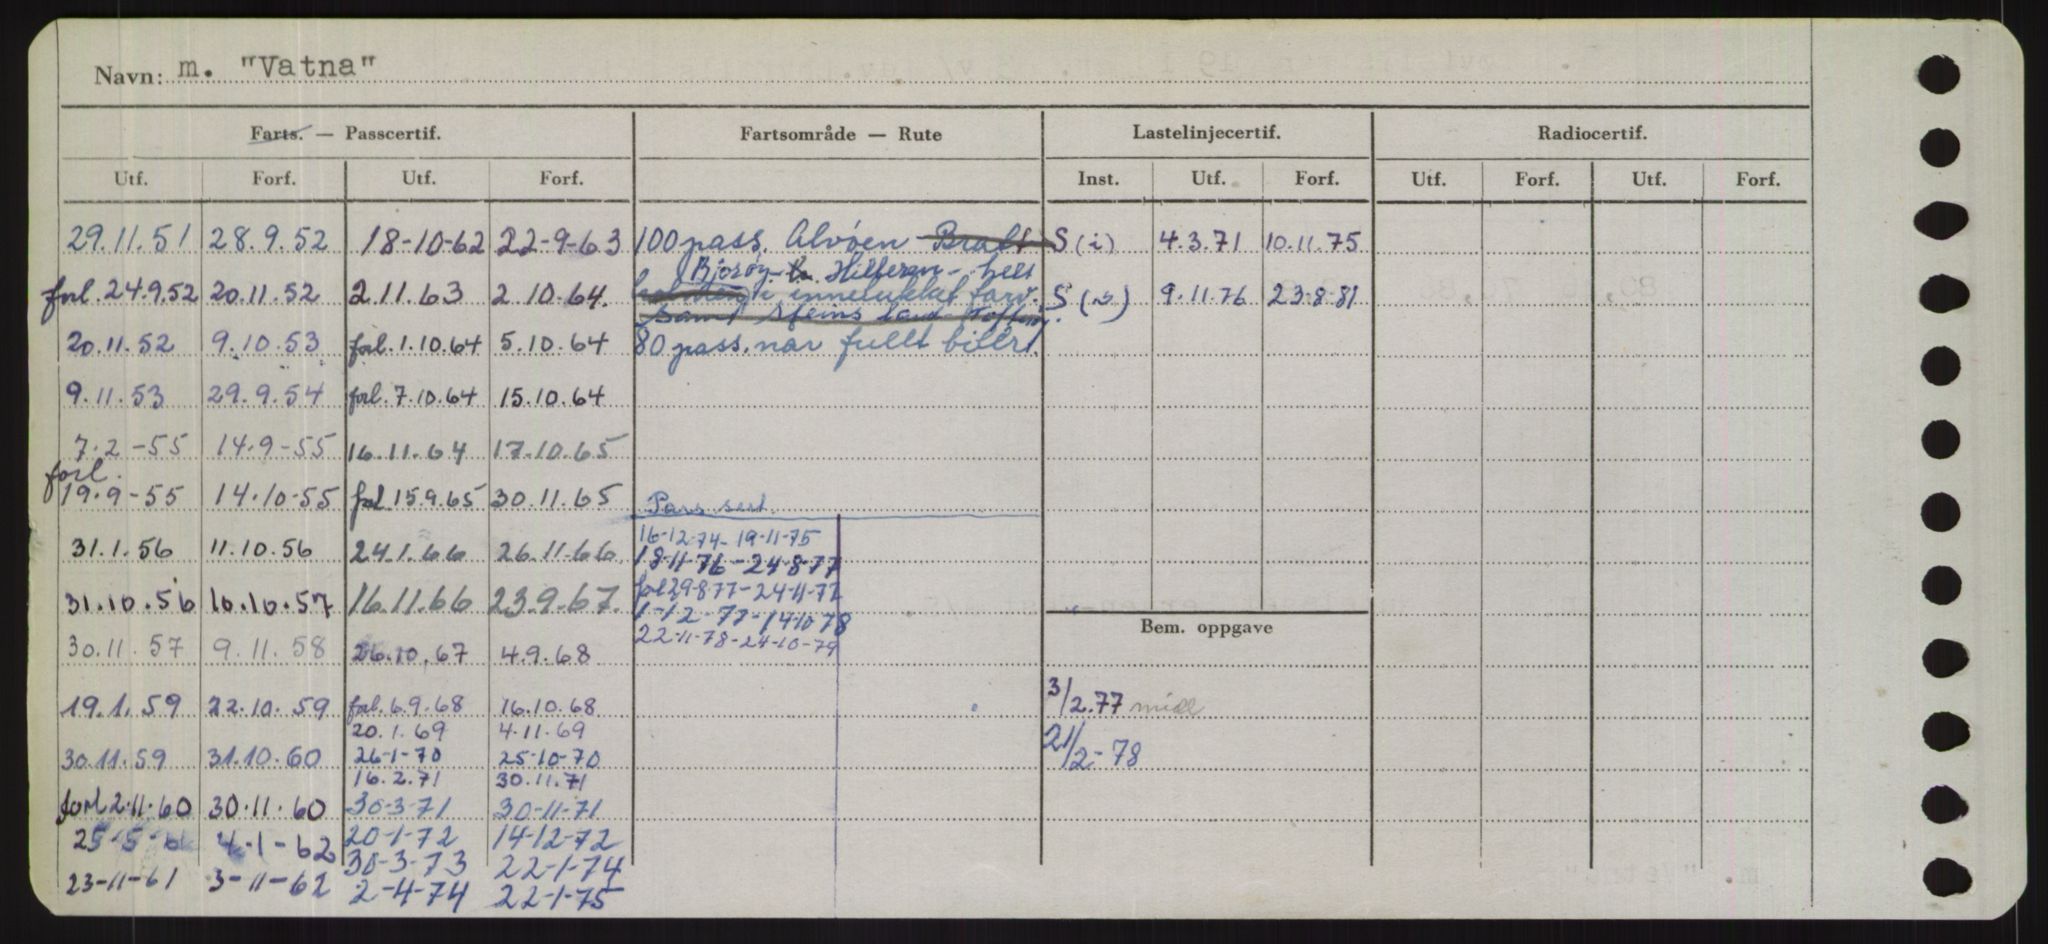 Navn: m. "Vatna"
Farts. — Passcertif. Fartsområde — Rute Lastelinjecertif. Radiocertif.
Utf. Forf. Utf. Forf. Inst. Utf. Forf. Utf. Forf. Utf. Forf.
29.11.51 28.9.52 18-10-62 22-9-63 100 pass. Alvøen - Bratt S (i) 4.3.71 10.11.75
Bjorøy - Hilleren - helt
forl. 24.9.52 20.11.52 2.11.63 2.10.64. holmen i innelukket farv. S (s) 9.11.76 23-8-81
samt Steinsland -
20.11.52 9.10.53 forl. 1.10.64 5.10.64 80 pass. når fullt billr.
9.11.53 29.9.54 forl. 7.10.64 15.10.64
7.2-55 14.9-55 16.11.64 17.10.65
forl.
19.9-55 14.10-55 forl 15.9.65 30.11.65 Pass sert.
16-12-74 - 19-11-75
31.1.56 11.10.56 24.1.66 26.11.66 18-11-76 - 24-8-77
forl 29-8-77 - 24-11-77
31.10.56 16.10.57 16.11.66 23.9.67. 1-12-77 - 14-10-78
Bem. oppgave
30.11.57 9.11.58 26.10.67 4.9.68 22-11-78 - 24-10-79
19.1.59 22.10.59 forl. 6.9.68 16.10.68 3/2.77 midl
20.1.69 4.11.69
30.11.59 31.10.60 26-1-70 25-10-70 21/2-78
16.2.71 30.11.71
forl 2.11.60 30.11.60 30-3-71 30-11-71
25-5-61 4-1-62 20-1-72 14-12-72
30-3-73 22-1-74
23-11-61 3-11-62 2-4-74 22-1-75